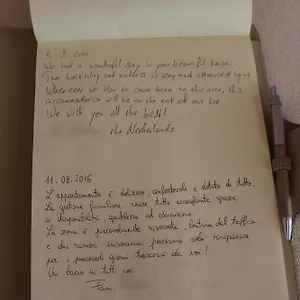 8. 8. 2016
We had a wonderful stay in your beautiful house.
Their hospitality and kindness is very much appreciated by us
Whenever we plan to come back to this area, this
accommodation will be on the top of our list.
We wish you all the best!
The Netherlands
11.08.2016
L'appartamento è delizioso, confortevole e dotato di tutto.
La gestione familiare rende tutto accogliente grazie
a disponibilità, gentilezza ed educazione.
La zona è piacevolmente riservata, lontana dal traffico
e dai rumori insomma possiamo solo ringraziare
per i piacevoli giorni trascorsi da voi!
Un bacio a tutti voi
Fam.